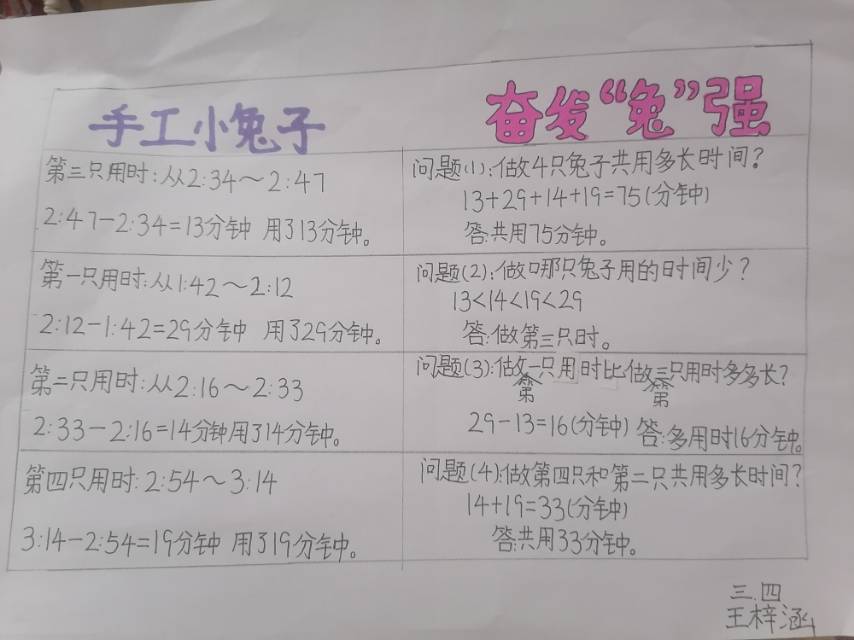 手工小兔子
奋发“兔”强
第三只用时:从2:34～2:47
2:47-2:34=13分钟 用了13分钟。
第一只用时:从1:42～2:12
2:12-1:42=29分钟 用了29分钟。
第二只用时:从2:16～2:33
2:33-2:16=14分钟用了14分钟。
第四只用时:2:54～3:14
3:14-2:54=19分钟 用了19分钟。
问题(1):做4只兔子共用多长时间?
13+29+14+19=75(分钟)
答:共用75分钟。
问题(2):做哪只兔子用的时间少?
13<14<19<29
答:做第三只时。
问题(3):做第一只用时比做第三只用时多多长?
29-13=16(分钟) 答:多用时16分钟。
问题(4):做第四只和第二只共用多长时间?
14+19=33(分钟)
答:共用33分钟。
三.四
王梓涵